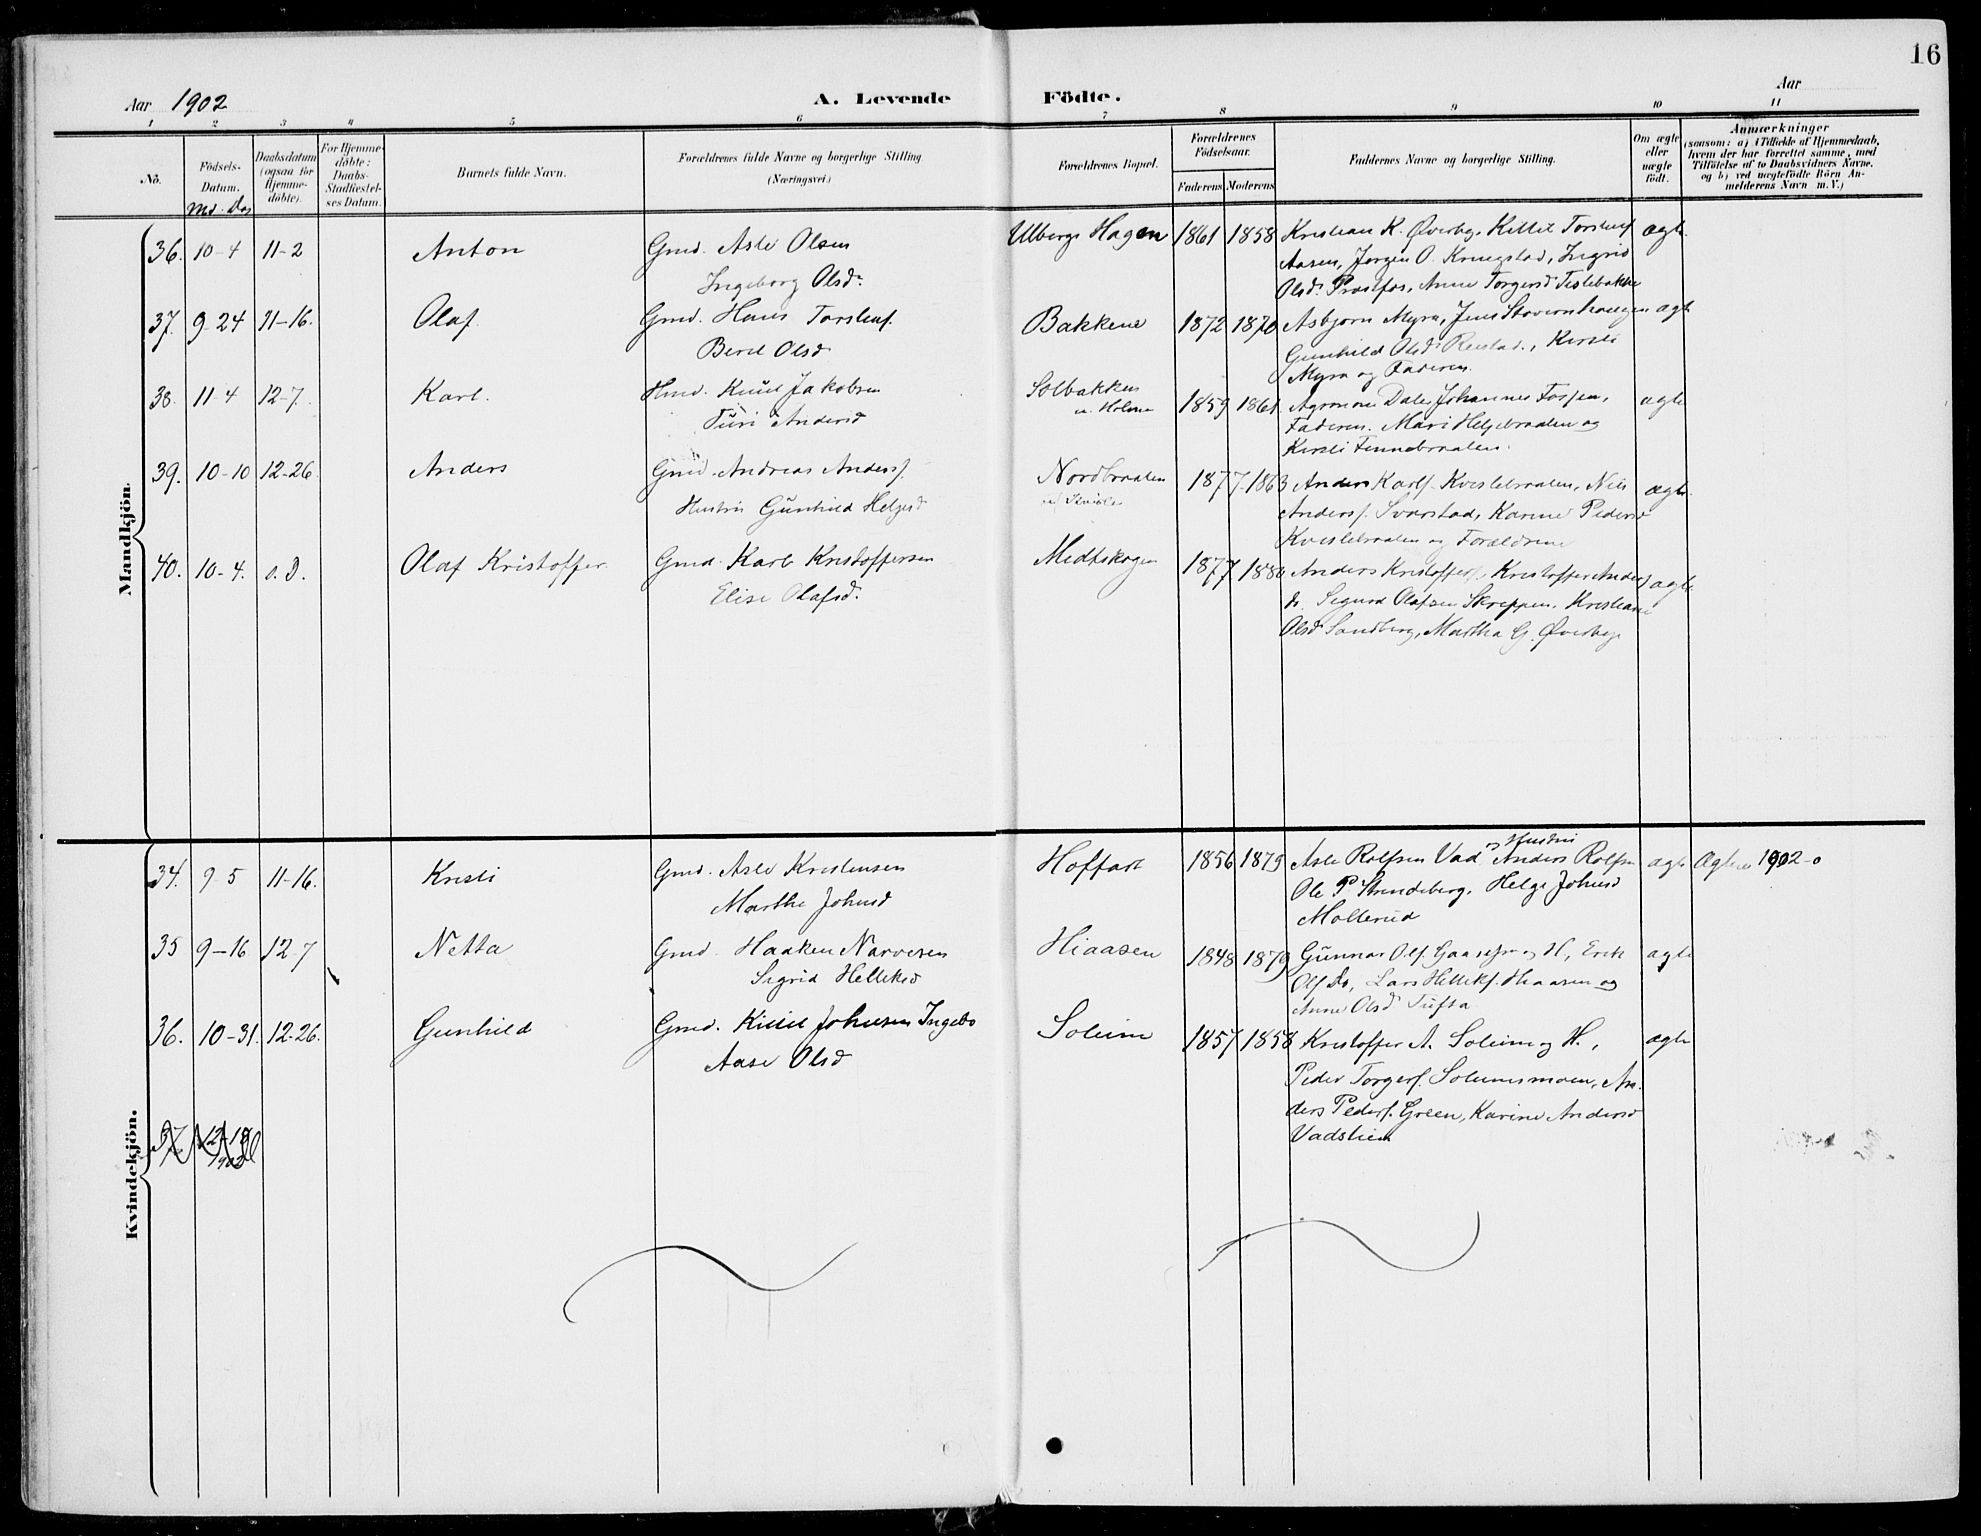 16
Aar 1902
A. Levende Födte.
Aar
1 2 3 4 5 6 7 8 9 10 11
No.
Födsels-Datum.
Md. Dag
Daabsdatum (ogsaa for Hjemme-döbte).
For Hjemme-döbte: Daabs-Stadfæstel-ses Datum.
Barnets fulde Navn.
Forældrenes fulde Navne og borgerlige Stilling.
(Næringsvei.)
Forældrenes Bopæl.
Forældrenes Födselsaar.
Faderens Moderens
Faddernes Navne og borgerlige Stilling.
Om ægte eller uægte födt.
Anmærkninger
(saasom: a) i Tilfælde af Hjemmedaab, hvem der har forrettet samme, med Tilföielse af to Daabsvidners Navne, og b) ved uægtefödte Börn An-melderens Navn m. V.)
Mandkjön.
36. 10-4 11-2 Anton Gmd. Asle Olsen Ulbergs Hagen 1861 1858 Kristian K. Øverby, Kittil Torstens. ægte
Ingeborg Olsd. Aasen, Jørgen O. Krugstad, Ingrid
Olsd. Prostfos, Anne Torgersd Teslebakke
37. 9-24 11-16. Olaf. Gmd. Hans Torstens. Bakkene 1872 1870 Asbjørn Myra, Jens Stovernhaugen ægte
Beret Olsd Gunhild Olsd Kirsti
Myra og Faderen.
38. 11-4 12-7. Karl. Hmd. Knud Jakobsen Solbakken 1859 1861 Agronom Dale, Johannes Fosjen, ægte
Turi Andersd u. Holme Faderen. Mari Helgebraaten og
Kirsti Finnebraaten.
39. 10-10 12-26. Anders Gmd. Andreas Anders. Nordbraaten 1877 1863 Anders Karls. Kvislebraaten, Nils ægte
Hustru Gunhild Helgesd Anders. Svarstad, Karine Pedersd
Kvislebraaten og Forældrene
40. 10-4. s. D. Olaf Kristoffer. Gmd. Karl Kristoffersen Medtskogen 1877 1880 Anders Kristoffers, Kristoffer Anders ægte
Elise Olafsd. ds. Sigurd Olafsen Skreppen, Kristiane
Olsd Sandberg, Martha G. Øverby
Kvindekjön.
34. 9-5 11-16. Kristi Gmd. Asle Kristensen Hoffart 1856 1879 Asle Rolfsen Vad og Hustru Anders Rolfsen ægte 1902-0
Marthe Johnsd Ole P. Strandeberg, Helge Johnsd
Mollerud
35 9-16 12-7 Netta Gmd. Haaken Narvesen Hiaasen 1848 1879 Gunnar Ols. og H., Erik ægte
Sigrid Helleksd Ols. Ds, Lars Helleks. Hiaasen og
Anne Olsd Tufta
36. 10-31. 12-26. Gunhild Gmd. Kittil Johnsen Ingebo Soleim 1857 1858 Kristoffer A. Soleim og H., ægte
Aase Olsd Peder Torgers. Soleimsmoen, An-
ders Peders. Green, Karine Andersd
Vadstien
37 12-18
1902